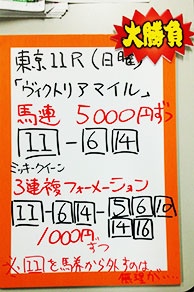 大勝負
東京11R(日曜)
「ヴィクトリアマイル」
馬連 5000円ずつ
11-6 14
ミッキークイーン
3連複フォーメーション
11-6 14-5 6 10
14 16
1000円ずつ
※、11を馬券から外すのは…
無理か…